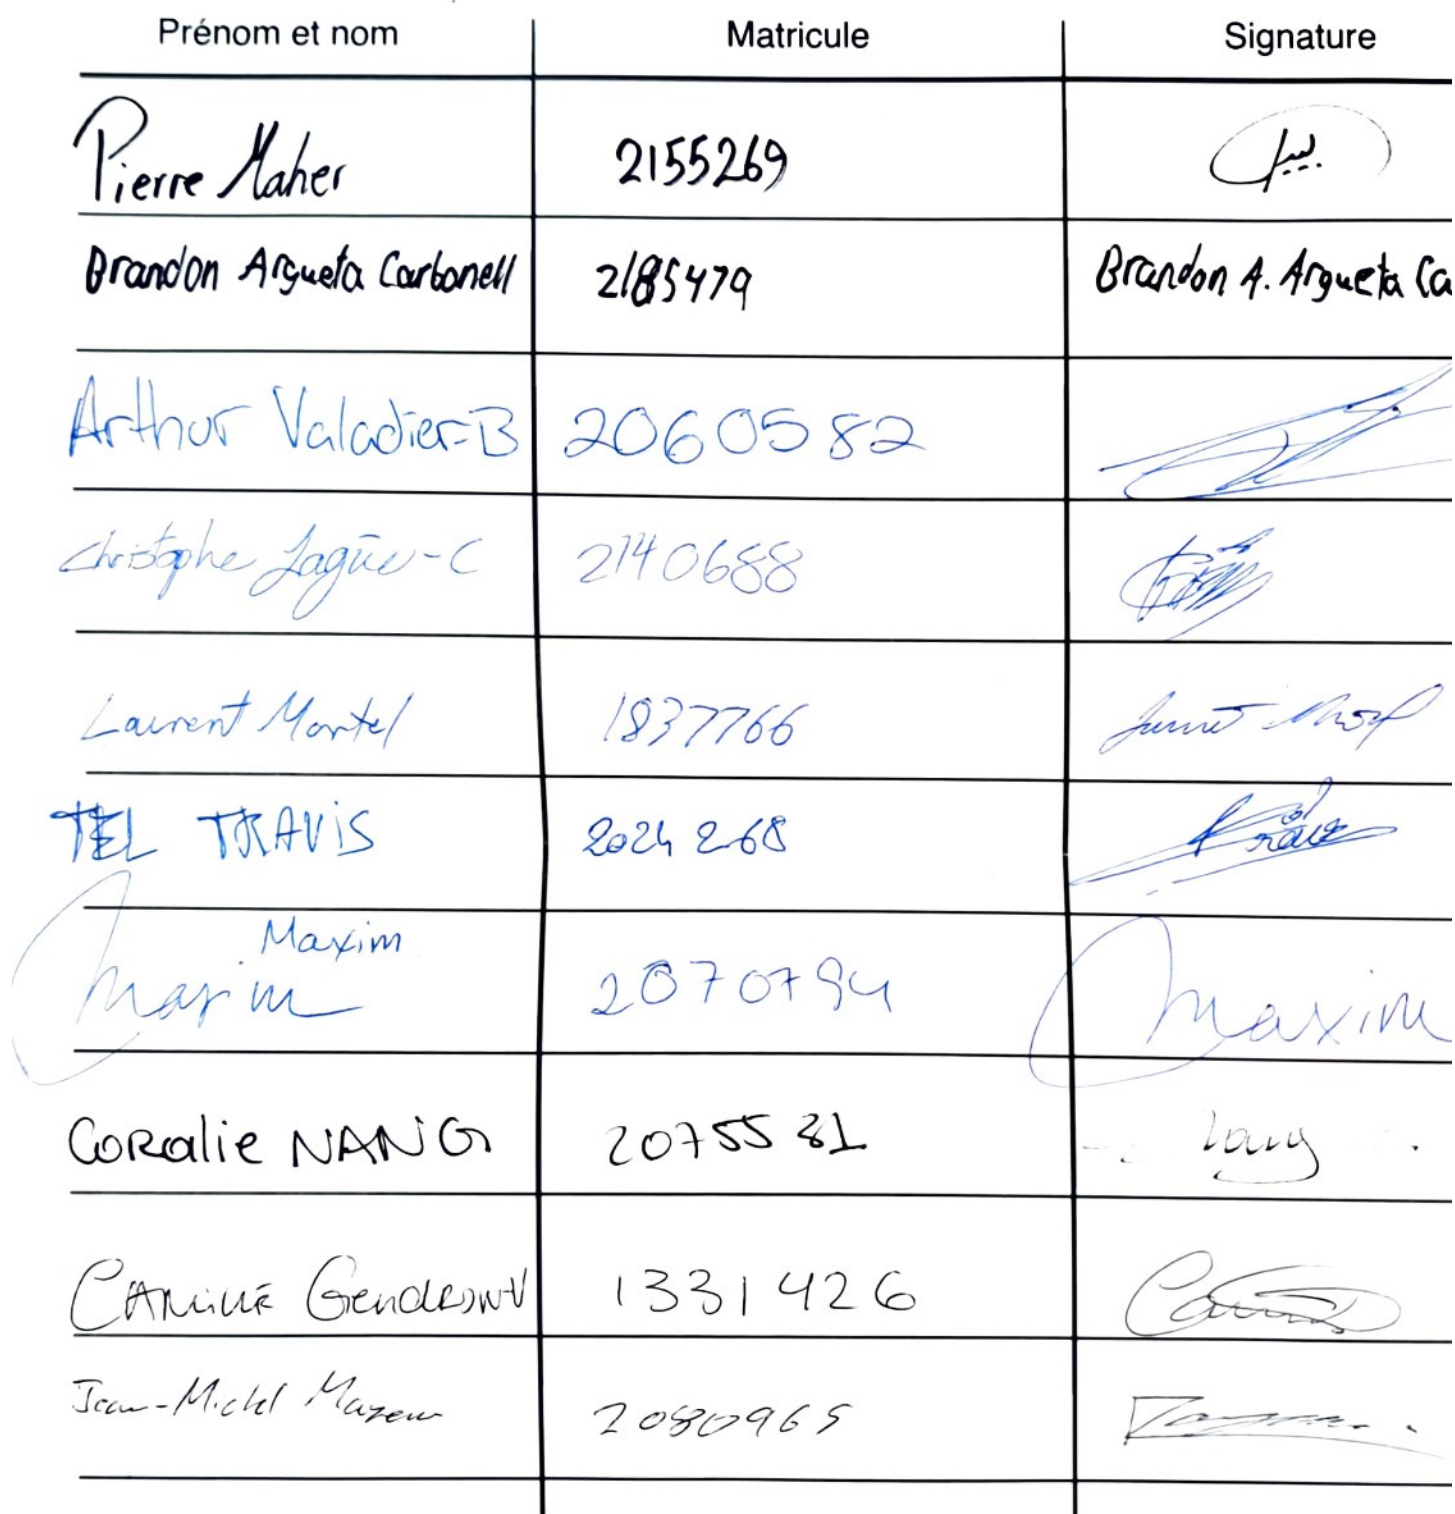 Prénom et nom Matricule Signature
Pierre Maher 2155269
Brandon Argueta Carbonell 2185479 Brandon A. Argueta Ca
Arthur Valadier-B 2060582
Christophe Lagüe-C 2140688
Laurent Martel 1837766
TEL TRAVIS 2024268
Maxim
Maxim 2070794 Maxim
Coralie NANG 2075581 Nang
CAMILLE Gendron-V 1331426
Jean-Michel 2080965